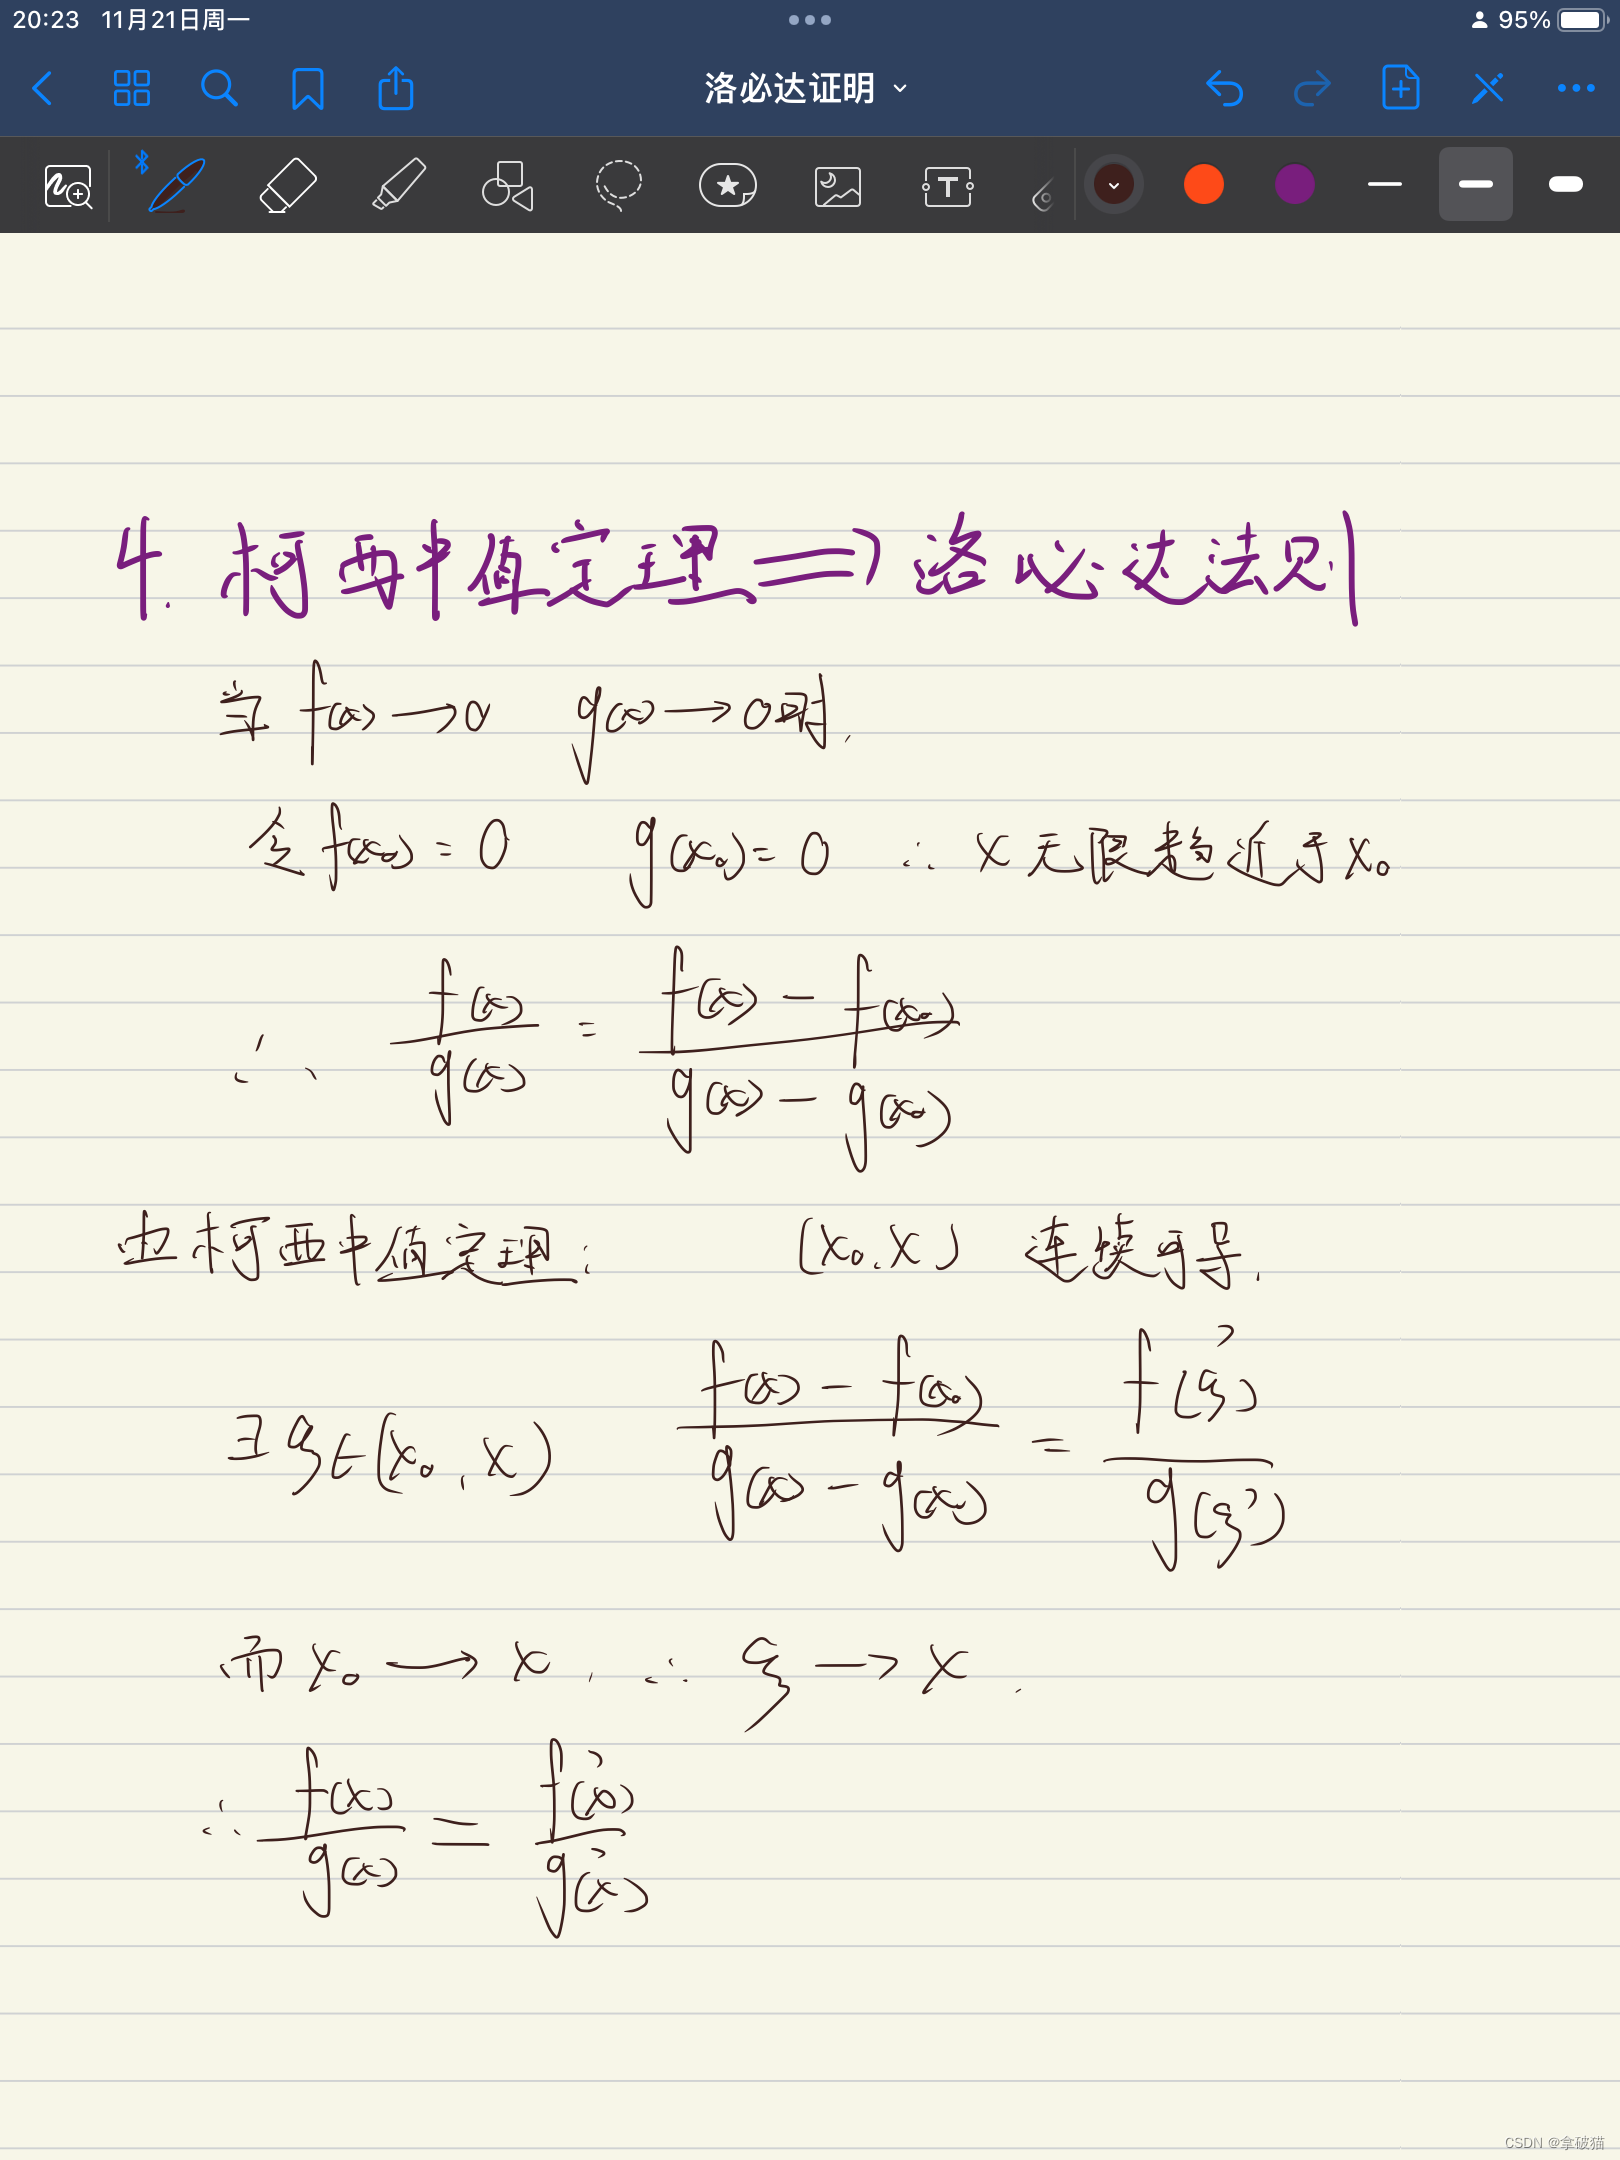 20:23 11月21日周一
95%
洛必达证明
T
4. 柯西中值定理 ⟹ 洛必达法则
当 f(x)→0 g(x)→0时.
令 f(x₀)=0 g(x₀)=0 ∴ x无限趋近于x₀
∴ f(x)/g(x) = (f(x)-f(x₀))/(g(x)-g(x₀))
由柯西中值定理: (x₀,x) 连续可导.
∃ξ∈(x₀,x) (f(x)-f(x₀))/(g(x)-g(x₀)) = f'(ξ)/g'(ξ)
而 x₀→x, ∴ ξ→x.
∴ f(x)/g(x) = f'(x)/g'(x)
CSDN @拿破猫